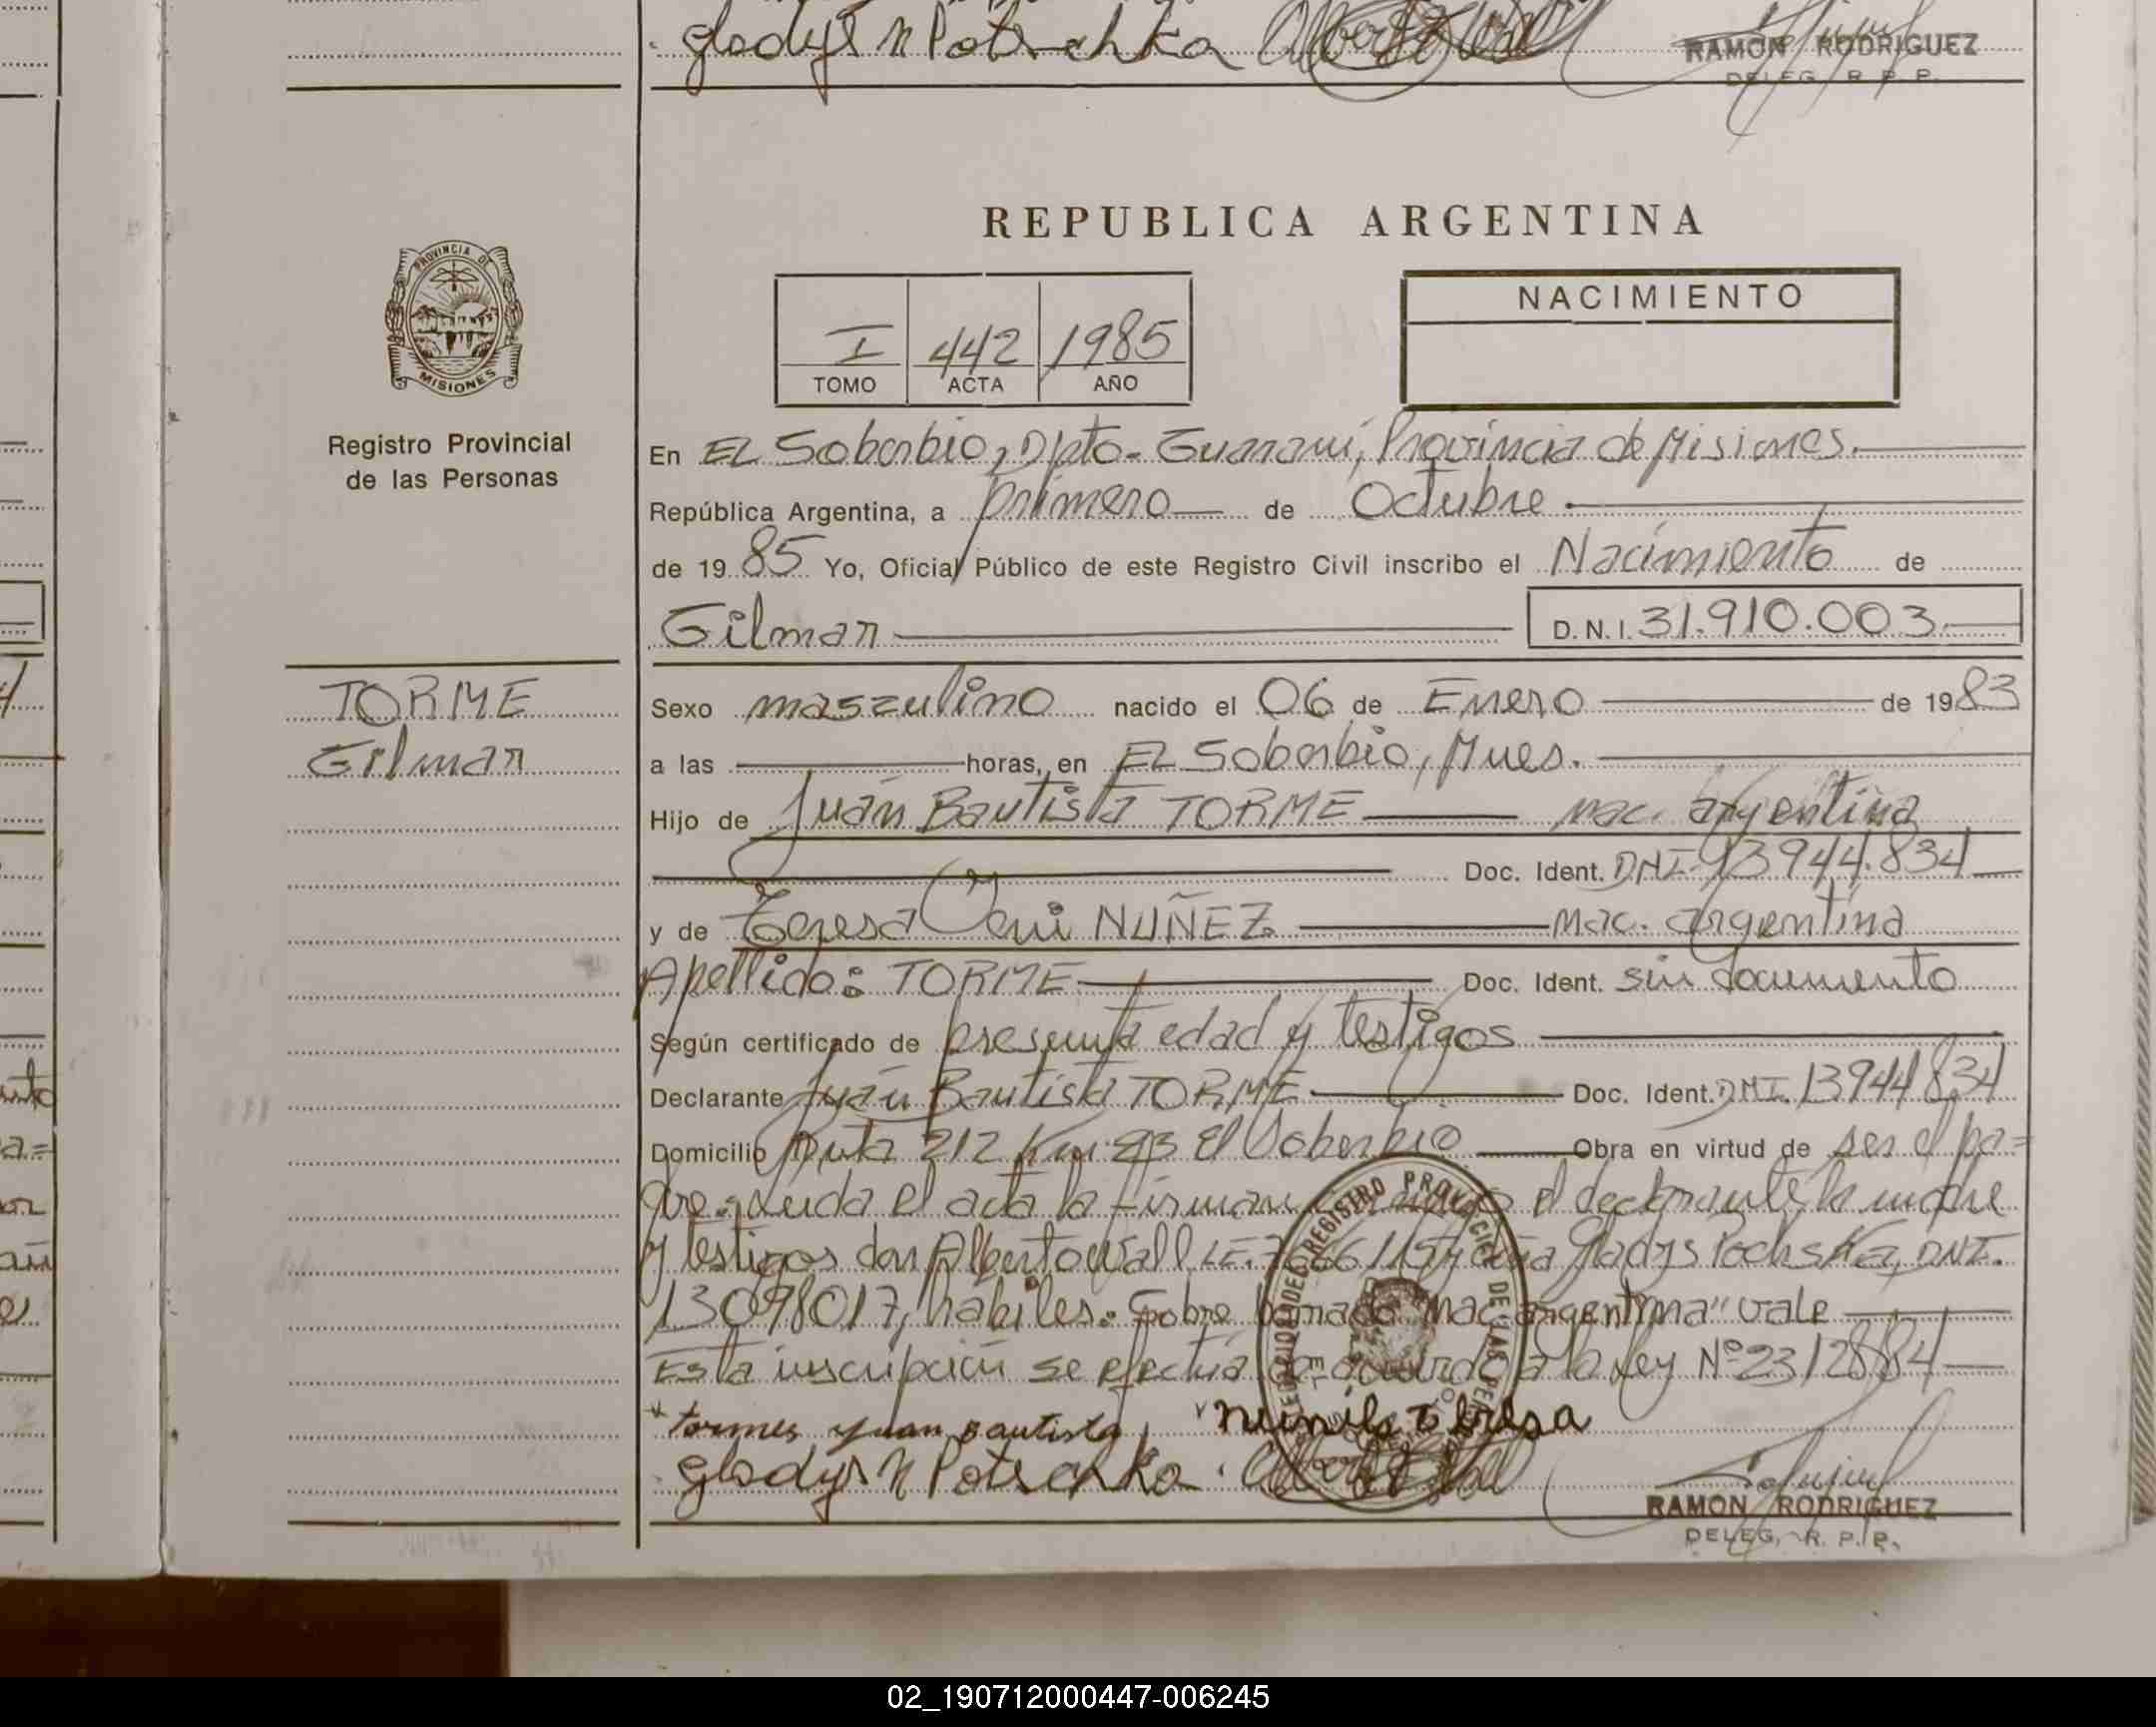 Gladys N Potschka
RAMON RODRIGUEZ
DELEG. R. P. P.
REPUBLICA ARGENTINA
PROVINCIA DE
MISIONES
Registro Provincial
de las Personas
I 442 1985
TOMO ACTA AÑO
NACIMIENTO
En EL Soberbio, Dpto- Guaraní, Provincia de Misiones.
República Argentina, a primero de Octubre
de 1985 Yo, Oficial Público de este Registro Civil inscribo el Nacimiento de
Gilmar D.N.I. 31.910.003
TORME
Gilmar
Sexo maszulino nacido el 06 de Enero de 1983
a las horas, en EL Soberbio, Mnes.
Hijo de Juan Bautista TORME nac. argentina
Doc. Ident. DNI 13944.834
y de Teresa NUÑEZ nac. argentina
Apellido: TORME Doc. Ident. sin documento
Según certificado de presunta edad y testigos
Declarante Juan Bautista TORME Doc. Ident. DNI. 13944834
Domicilio Ruta 212 Km El Soberbio Obra en virtud de ser el pa=
dre. Leida el acta la firman el declarante, la madre
y testigos don Alberto Wall LE. Gladys DNI.
13098017, habiles. Sobre borrado "nac argentina" vale
Esta inscripción se efectúa de acuerdo a la Ley Nº 23128/84
tormes Juan Bautista Teresa
Gladys N Potschka
RAMON RODRIGUEZ
DELEG. R. P. P.
02_190712000447-006245